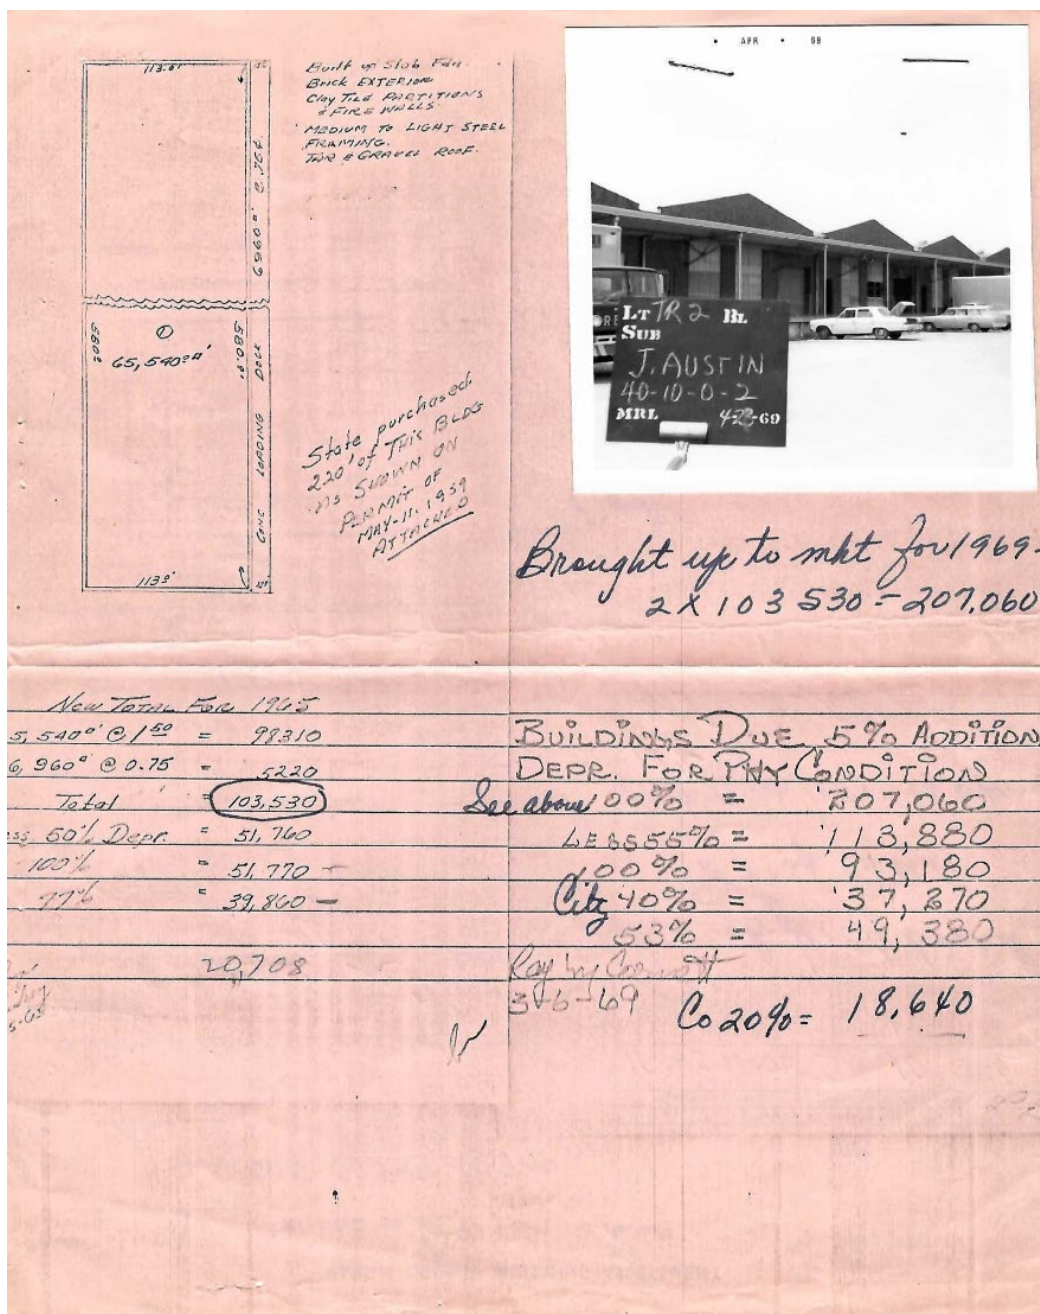 113.0'
Built up Slab Fdn.
Brick EXTERIOR
Clay Tile PARTITIONS
& FIRE WALLS.
MEDIUM TO LIGHT STEEL
FRAMING.
TAR & GRAVEL ROOF.
6960°' @ .75¢
580°
①
65,540°□'
580.0'
CONC LOADING DOCK
113°'
12°
State purchased
220' of THIS BLDG
AS SHOWN ON
PERMIT OF
MAY-11, 1959
ATTACHED
• APR • 69
LT TR 2 BL
SUB
J. AUSTIN
40-10-0-2
MRL 4-23-69
Brought up to mkt for 1969-
2 X 103530 = 207,060
New Total For 1965
5,540°' @ 1 50 = 98310
6,960° @ 0.75 = 5220
Total = 103,530
ss 50% Depr. = 51,760
100% = 51,770 -
77% = 39,860 -
20,708
BUILDINGS DUE 5% ADDITION
DEPR. FOR PHY CONDITION
See above 100% = 207,060
LESS 55% = 113,880
100% = 93,180
City 40% = 37,270
53% = 49,380
Ray by
3-6-69
Co 20% = 18,640